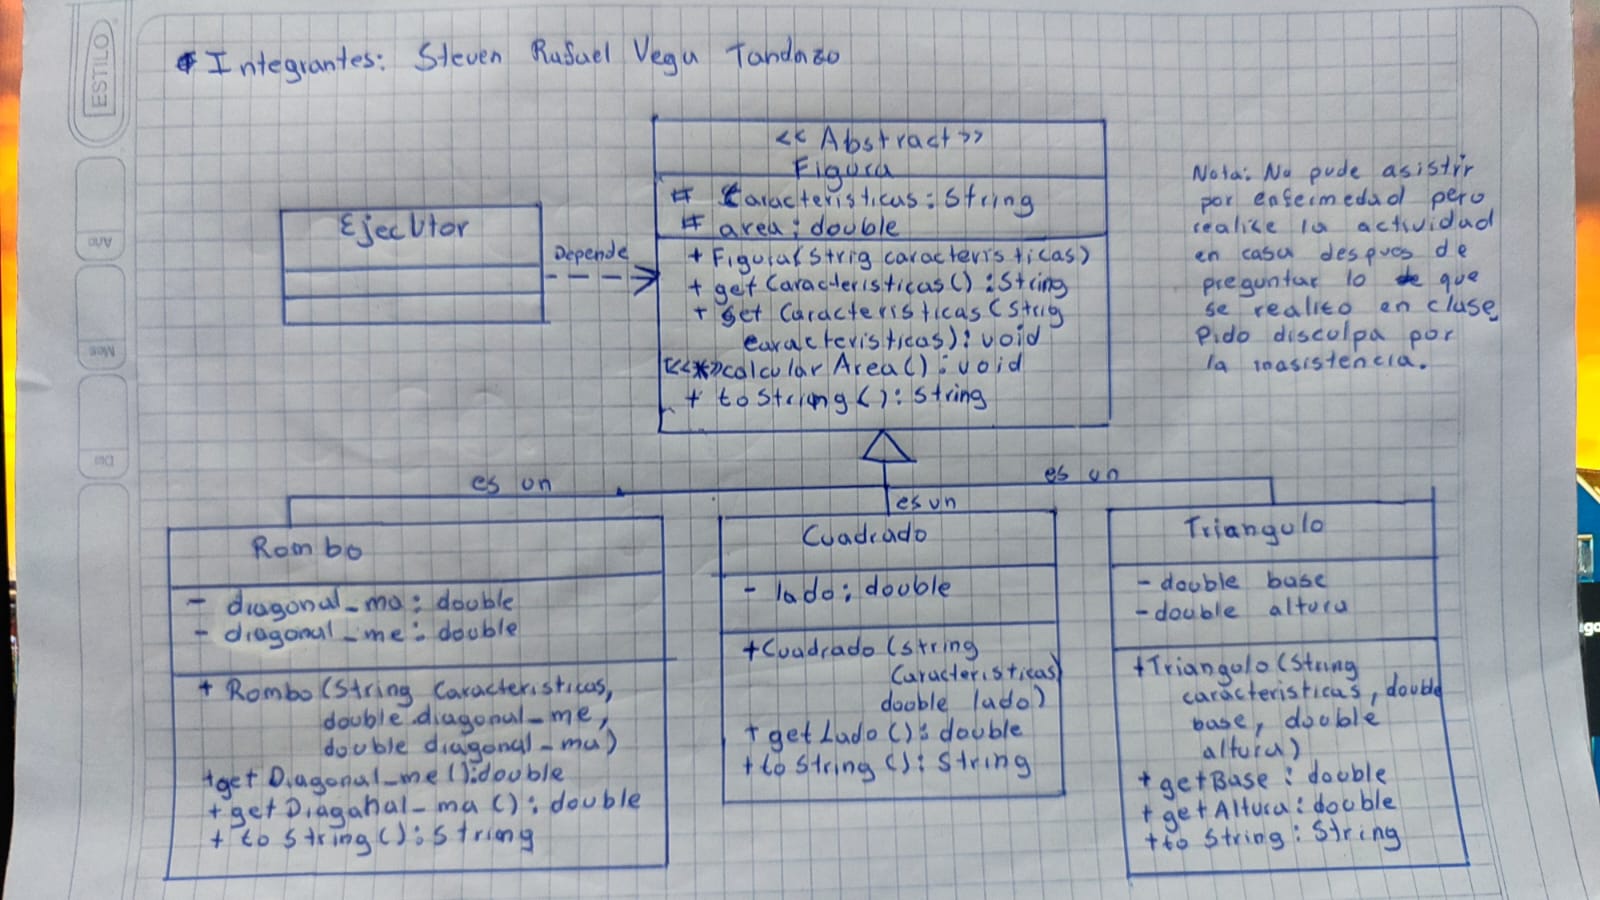 * Integrantes: Steven Rafael Vega Tandazo
<< Abstract >>
Figura
# Caracteristicas: String
# area: double
+ Figura(Strig caracteristicas)
+ getCaracteristicas(): String
+ set Caracteristicas(Strig
caracteristicas): void
<<*>>calcularArea(): void
+ toString(): String
Ejecutor
Depende
Nota: No pude asistir
por enfermedad pero
realice la actividad
en casa despues de
preguntar lo que
se realizo en clase,
Pido disculpa por
la inasistencia.
es un
es un
es un
Rombo
- diagonal_ma: double
- diagonal_me: double
+ Rombo(String Caracteristicas,
double diagonal_me,
double diagonal_ma)
+get Diagonal_me():double
+ get Diagonal_ma(): double
+ to String(): String
Cuadrado
- lado: double
+Cuadrado(String
Caracteristicas,
double lado)
+ getLado(): double
+ to String(): String
Triangulo
- double base
- double altura
+Triangulo(String
caracteristicas, double
base, double
altura)
+ getBase: double
+ getAltura: double
+to String: String
ESTILO
Año
Mes
Dia